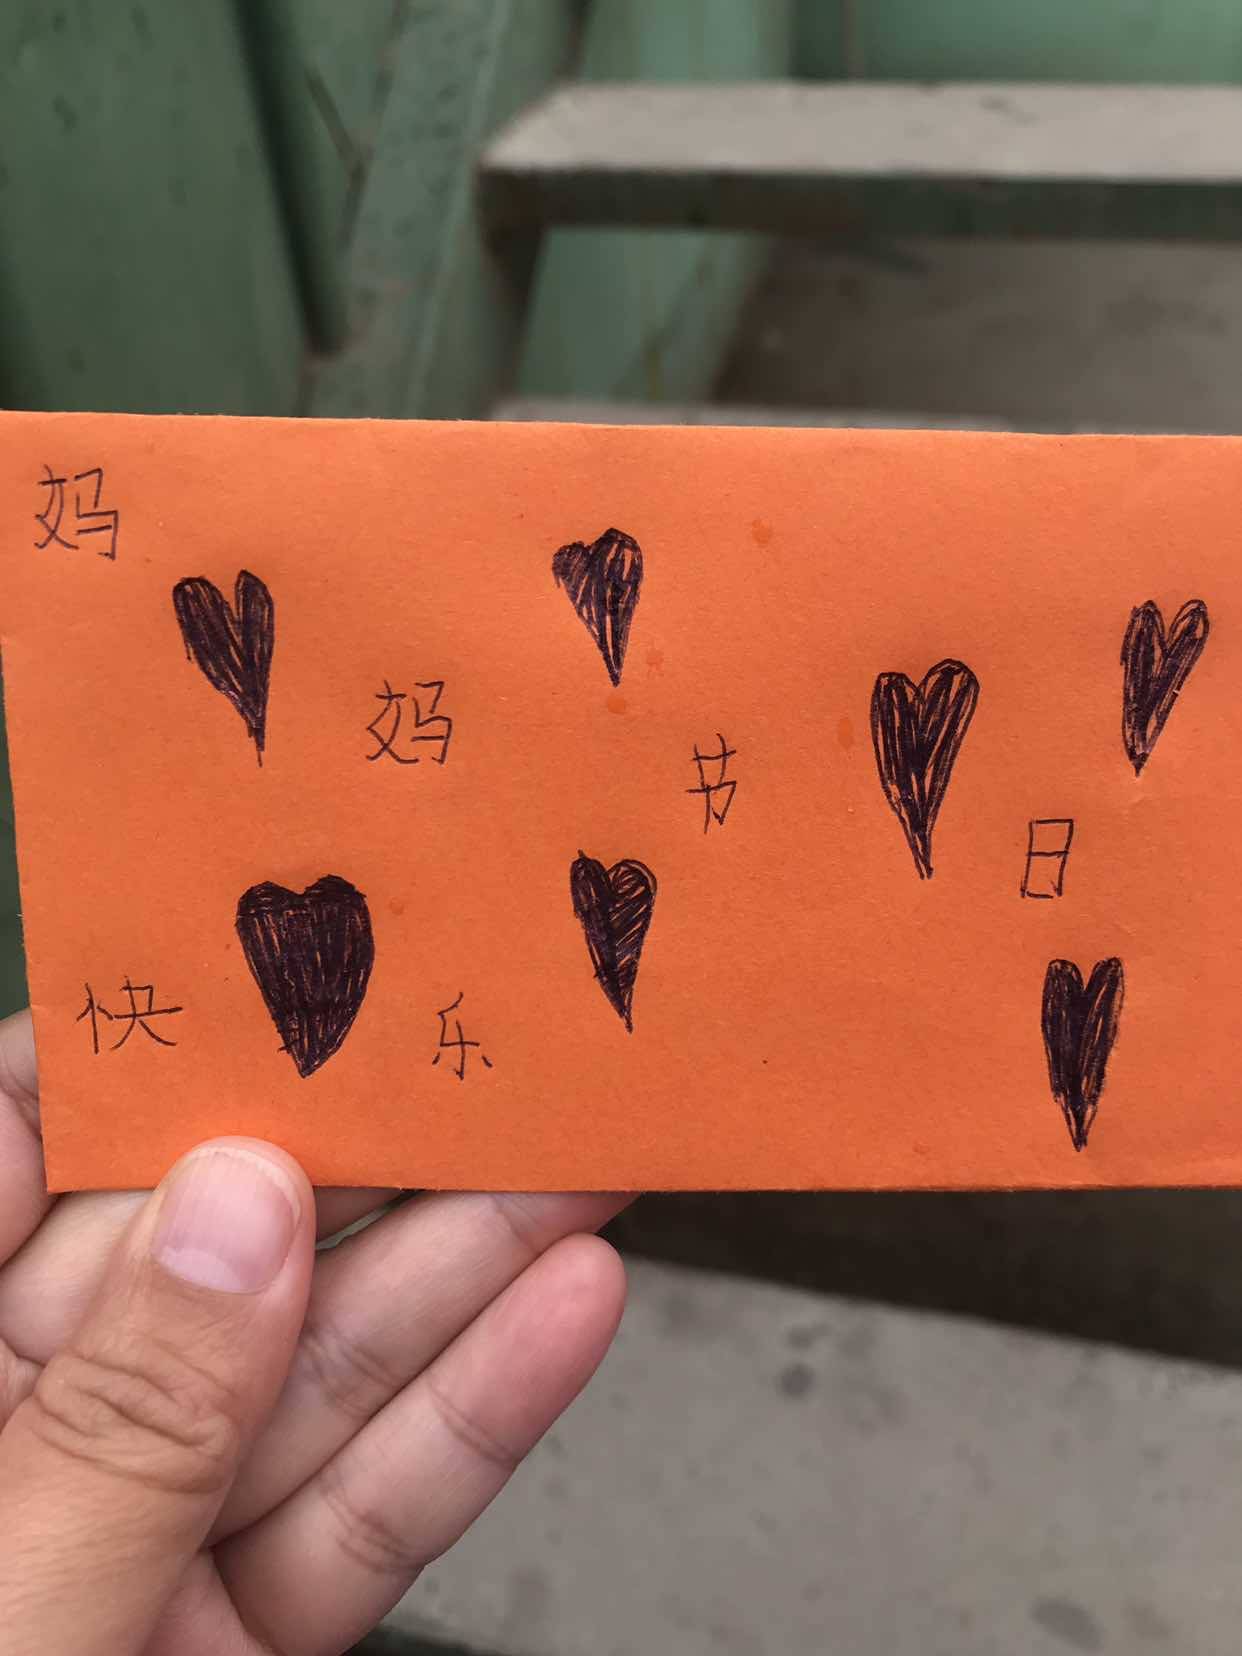 妈妈节日
快乐